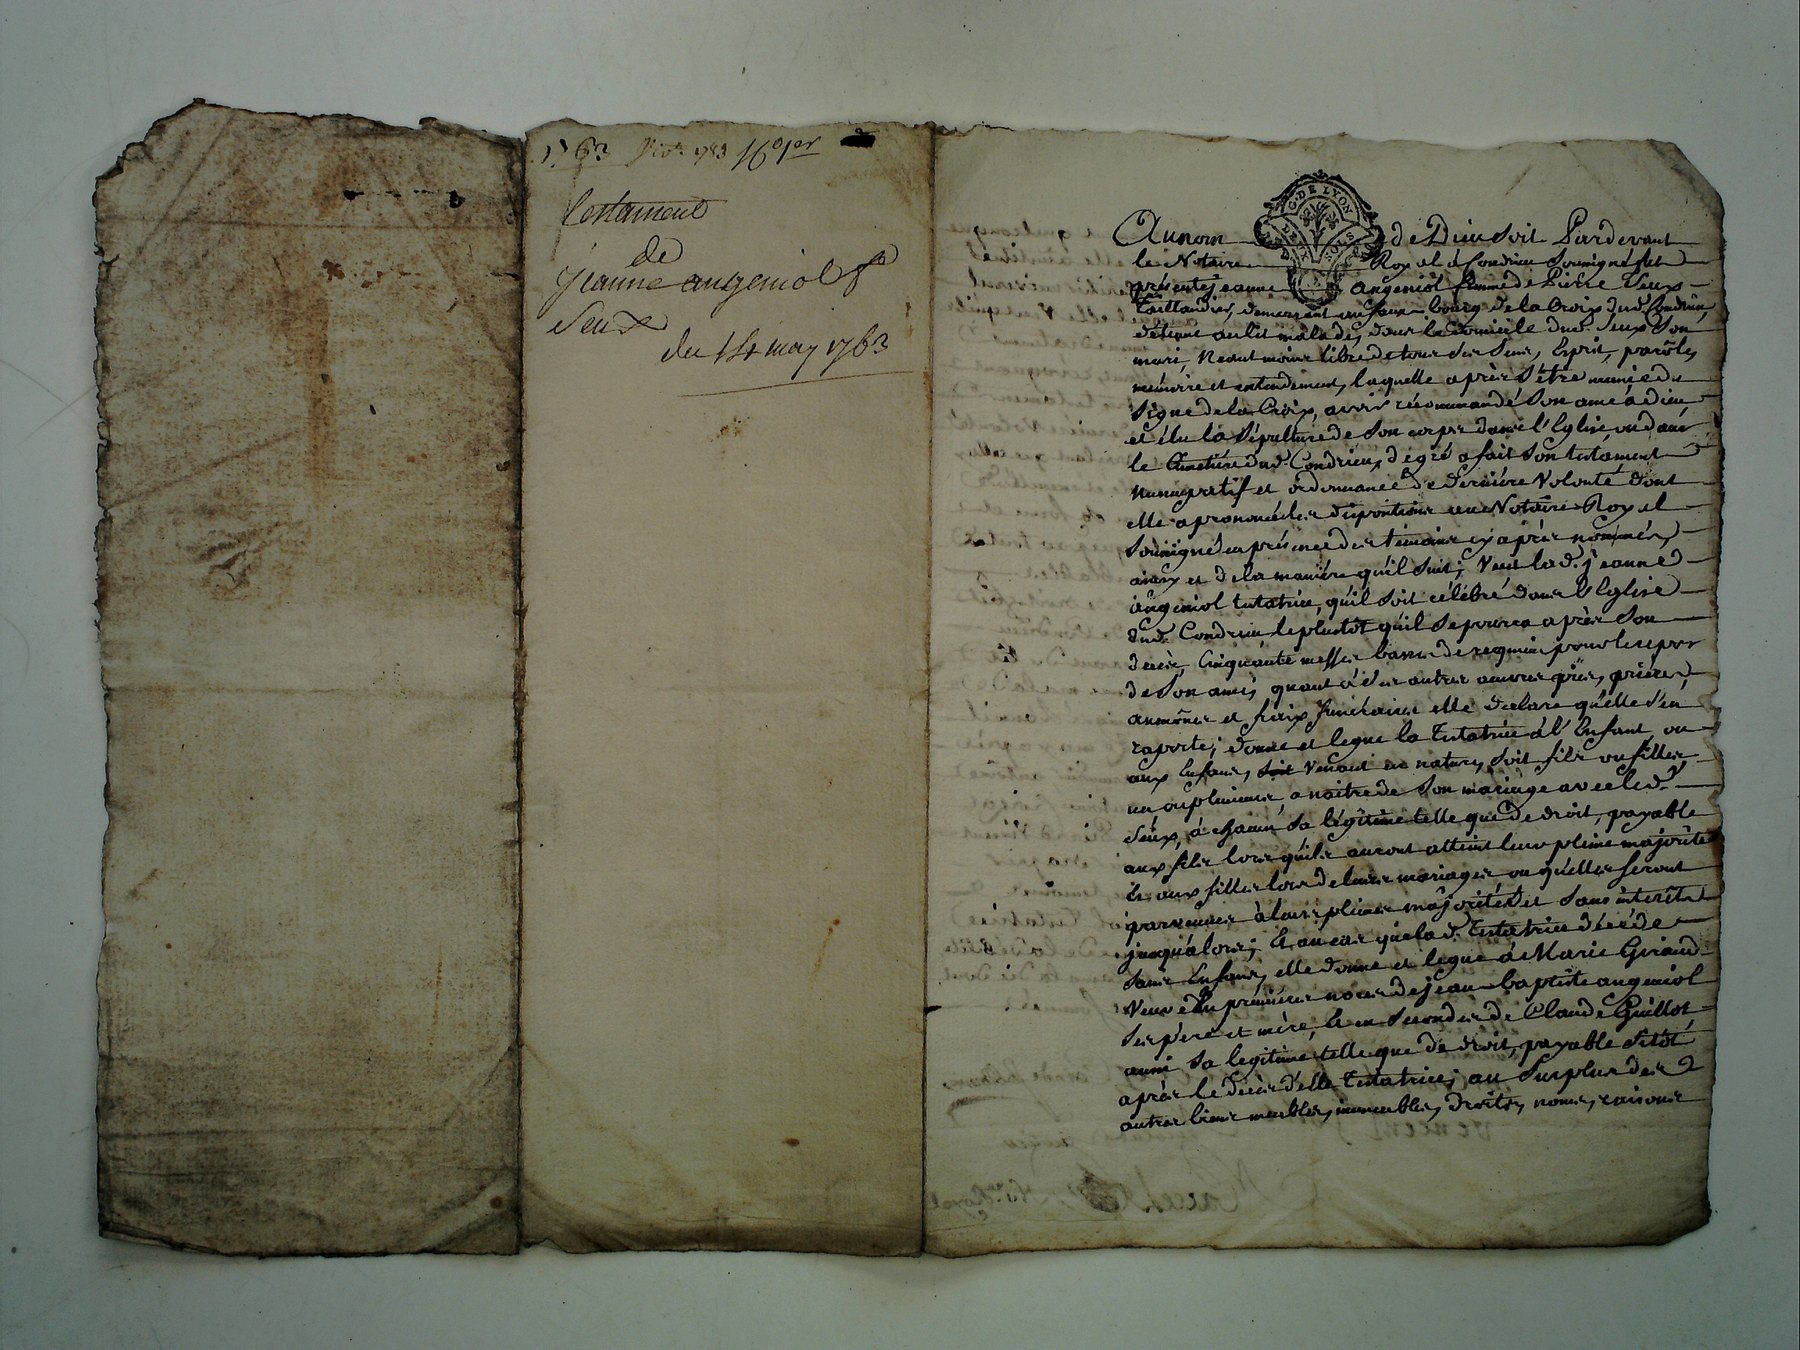 1763
Testament
de
jeanne angeniol fe
Seux
du 14 may 1763
G. DE LYON
Au nom de Dieu soit Pardevant
le Notaire Royal à Condrieu Soussigné fut
présente jeanne angeniol femme de Pierre Seux
Taillandier, demeurant au faux-bourg de la Croix dud. Condrieu
détenue au lit malade, dans le domicile dud. Seux Son
mari, Neantmoins libre de tous Ses Sens, Esprit, parôle,
mémoire et entendement, laquelle après s'être munie du
Signe de la Croix, avoir récommandé Son ame a dieu
et élu la Sépulture de Son corps dans l'Eglise ou dans
le Cimetiére dud. Condrieu, dégré a fait Son testament
Nuncupatif et ordonnance de derniére Volonté dont
elle a prononcé les dispositions au Notaire Royal
Soussigné en présence des témoins cy après nommés,
ainsy et de la maniére qu'il Suit; Veut la d. jeanne
angeniol testatrice, qu'il soit célébré dans l'Eglise
dud. Condrieu le plustôt qu'il Se pourra après Son
décès, Cinquante messes basses de requiem pour le repos
de Son ame, quant à Ses autres œuvres pies, priéres,
aumônes et fraix funéraires elle déclare qu'elle s'en
raporte; donne et legue la Testatrice à l'Enfant, ou
aux Enfans, soit Venant en nature, Soit fils ou filles,
un ou plusieurs, a naitre de Son mariage avec led.
Seux, à chacun Sa légitime telle que de droit, payable
aux fils lors qu'ils auront atteint leur pleine majorité
Et aux filles lors de leurs mariages ou qu'elles Seront
parvenues à leurs pleines majorités et Sans intérêts
jusqu'alors; Et au cas que la d. Testatrice décéde
Sans Enfans, elle donne et legue à Marie Giraud
Veuve En premiéres noces de jean-baptiste angeniol
Ses père et mère, Et en Secondes de Claude Guillot
aussi Sa legitime telle que de droit, payable Sitôt
après le décès d'elle Testatrice; au Surplus des
autres biens meubles, immeubles, droits, noms, raisons